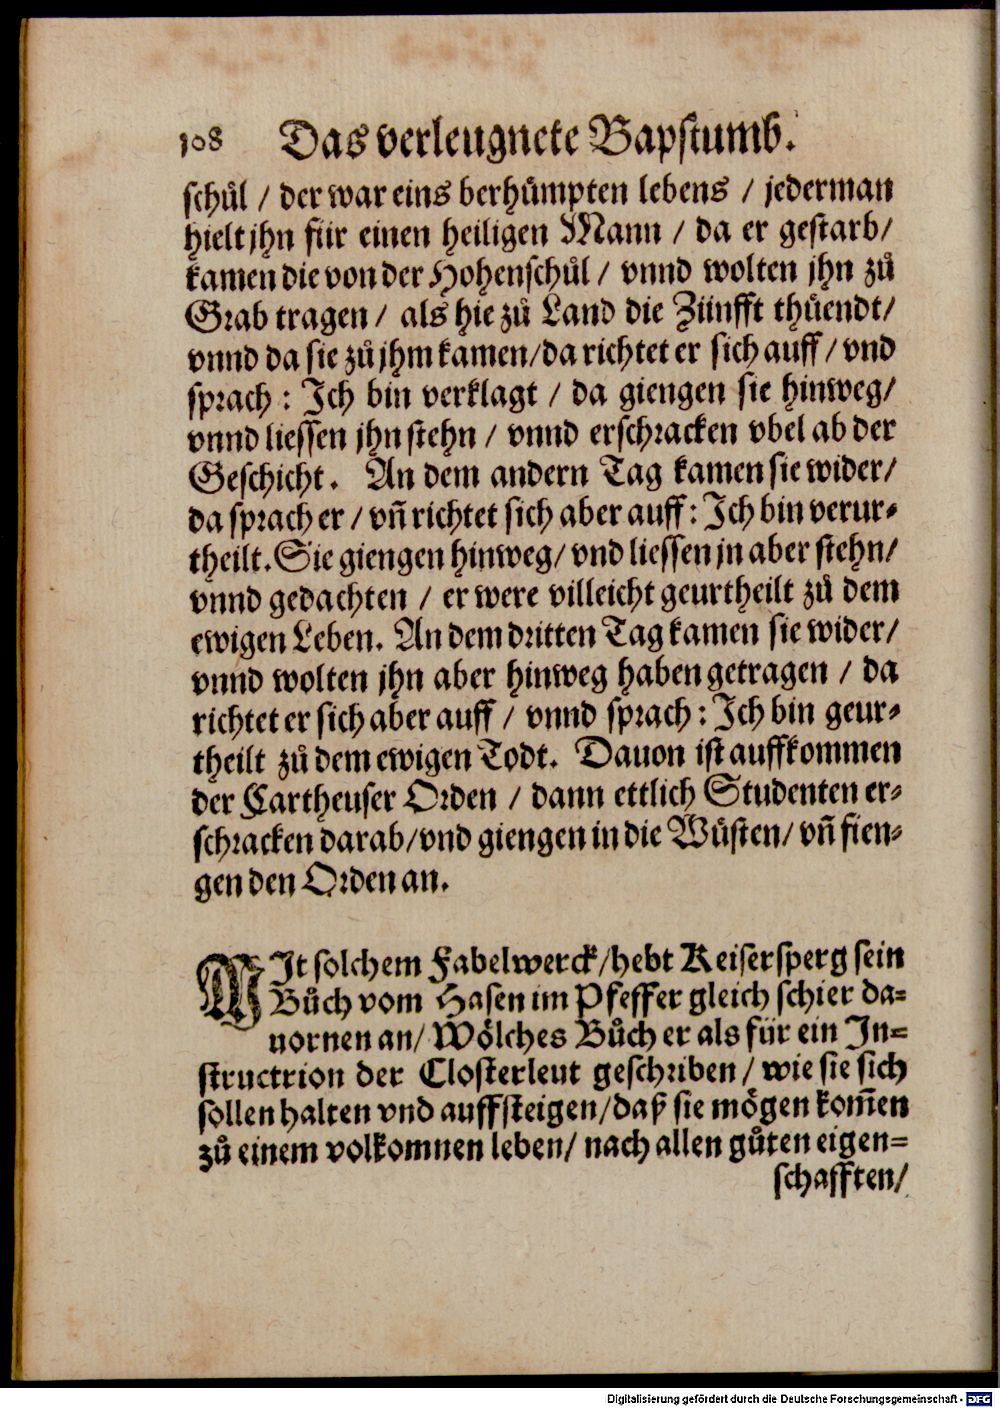 108 Das verleugnete Bapstumb.
schůl / der war eins berhůmpten lebens / jederman
hielt jhn für einen heiligen Mann / da er gestarb/
kamen die von der Hohenschůl / vnnd wolten jhn zů
Grab tragen / als hie zů Land die Zünfft thůendt/
vnnd da sie zů jhm kamen/da richtet er sich auff / vnd
sprach : Ich bin verklagt / da giengen sie hinweg/
vnnd liessen jhn stehn / vnnd erschracken vbel ab der
Geschicht. An dem andern Tag kamen sie wider/
da sprach er / vñ richtet sich aber auff : Ich bin verur-
theilt. Sie giengen hinweg/ vnd liessen jn aber stehn/
vnnd gedachten / er were villeicht geurtheilt zů dem
ewigen Leben. An dem dritten Tag kamen sie wider/
vnnd wolten jhn aber hinweg haben getragen / da
richtet er sich aber auff / vnnd sprach : Ich bin geur-
theilt zů dem ewigen Todt. Dauon ist auffkommen
der Cartheuser Orden / dann ettlich Studenten er-
schracken darab/vnd giengen in die Wůsten/ vñ fien-
gen den Orden an.
MIt solchem Fabelwerck/hebt Keisersperg sein
Bůch vom Hasen im Pfeffer gleich schier da-
uornen an/ Wölches Bůch er als für ein In-
structrion der Closterleut geschriben / wie sie sich
sollen halten vnd auffsteigen/daß sie mögen kom̃en
zů einem volkomnen leben/ nach allen gůten eigen-
schafften/
Digitalisierung gefördert durch die Deutsche Forschungsgemeinschaft - DFG